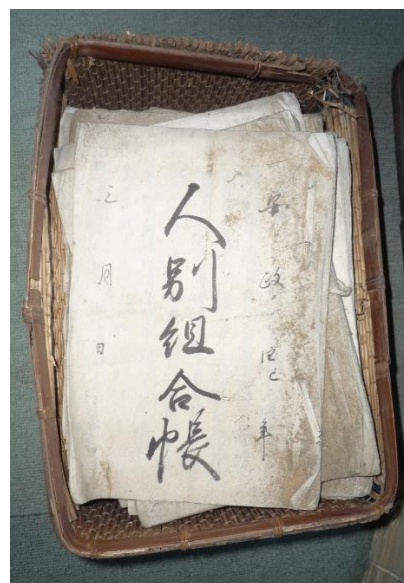 安政四巳年
人別組合帳
三月日